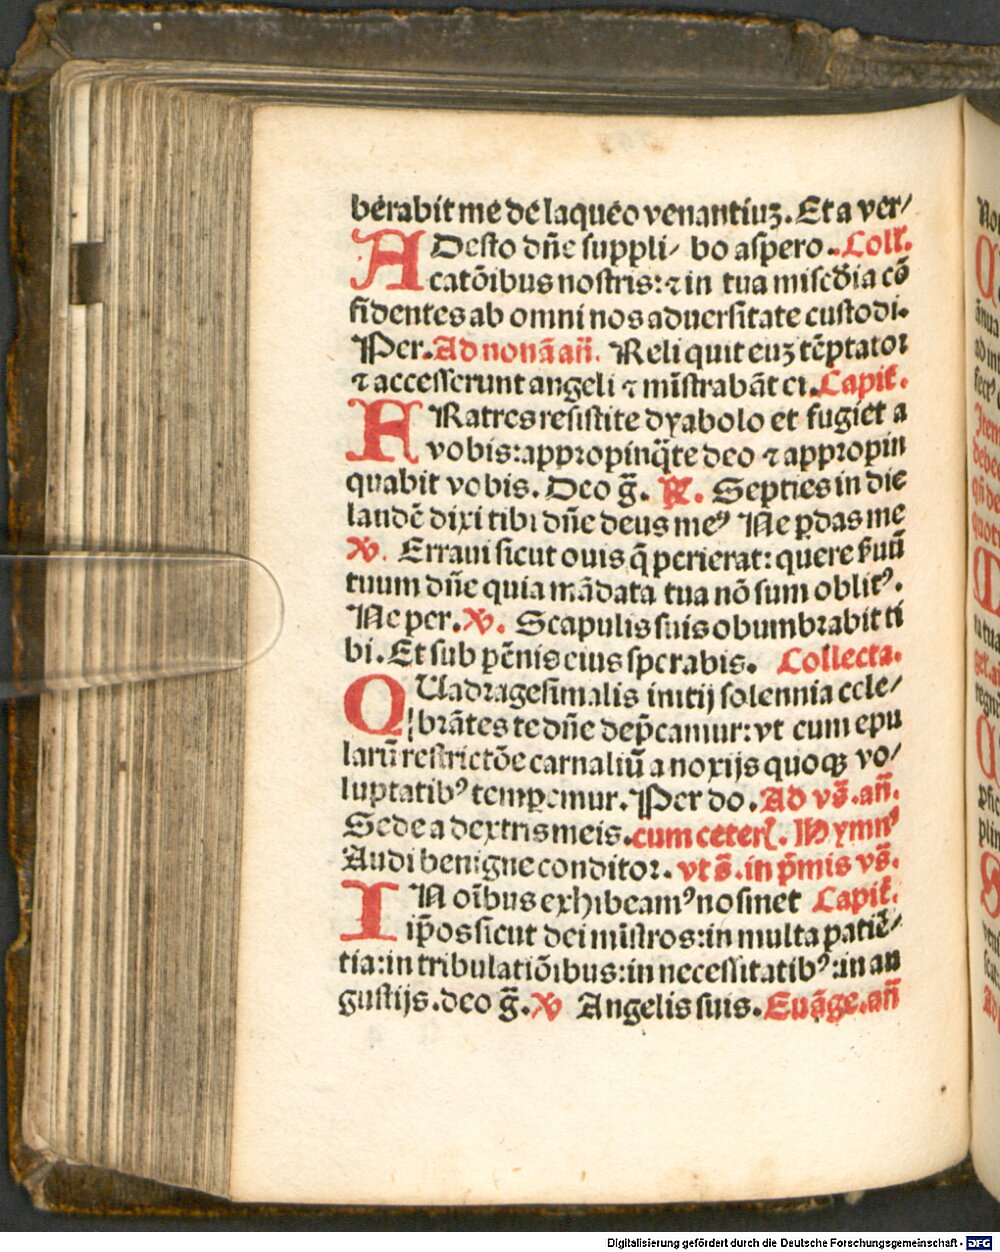 berabit me de laqueo venantiuꝫ. Et a ver⸗
ADesto dñe suppli⸗ bo aspero. Coll'.
catōibus nostris: ⁊ in tua miscd̄ia cō
fidentes ab omni nos aduersitate custodi.
Per. Ad nonā añ. Reliquit euꝫ tēptator
⁊ accesserunt angeli ⁊ mīstrabāt ei. Capit̄.
FRatres resistite dyabolo et fugiet a
vobis: appropinq̄te deo ⁊ appropin
quabit vobis. Deo g̃. ℟. Septies in die
laudē dixi tibi dñe deus meꝰ Ne ꝑdas me
℣. Erraui sicut ouis q̄ perierat: quere ẜuū
tuum dñe quia mādata tua nō sum oblitꝰ.
Ne per. ℣. Scapulis suis obumbrabit ti
bi. Et sub pēnis eius sperabis. Collecta.
QUadragesimalis initij solennia cele⸗
brātes te dñe dep̄camur: vt cum epu
larū restrictōe carnaliū a noxijs quoqꝫ vo⸗
luptatibꝰ temꝑemur. Per do. Ad vs̄. añ.
Sede a dextris meis. cum ceterꝭ. Hymnꝰ
Audi benigne conditor. vt s̄. in p̄mis vs̄.
IN oībus exhibeamꝰ nosmet Capit̄.
ip̄os sicut dei mīstros: in multa patiē⸗
tia: in tribulatiōibus: in necessitatibꝰ: in an
gustijs. deo g̃. ℣ Angelis suis. Euāge. añ
Digitalisierung gefördert durch die Deutsche Forschungsgemeinschaft - DFG